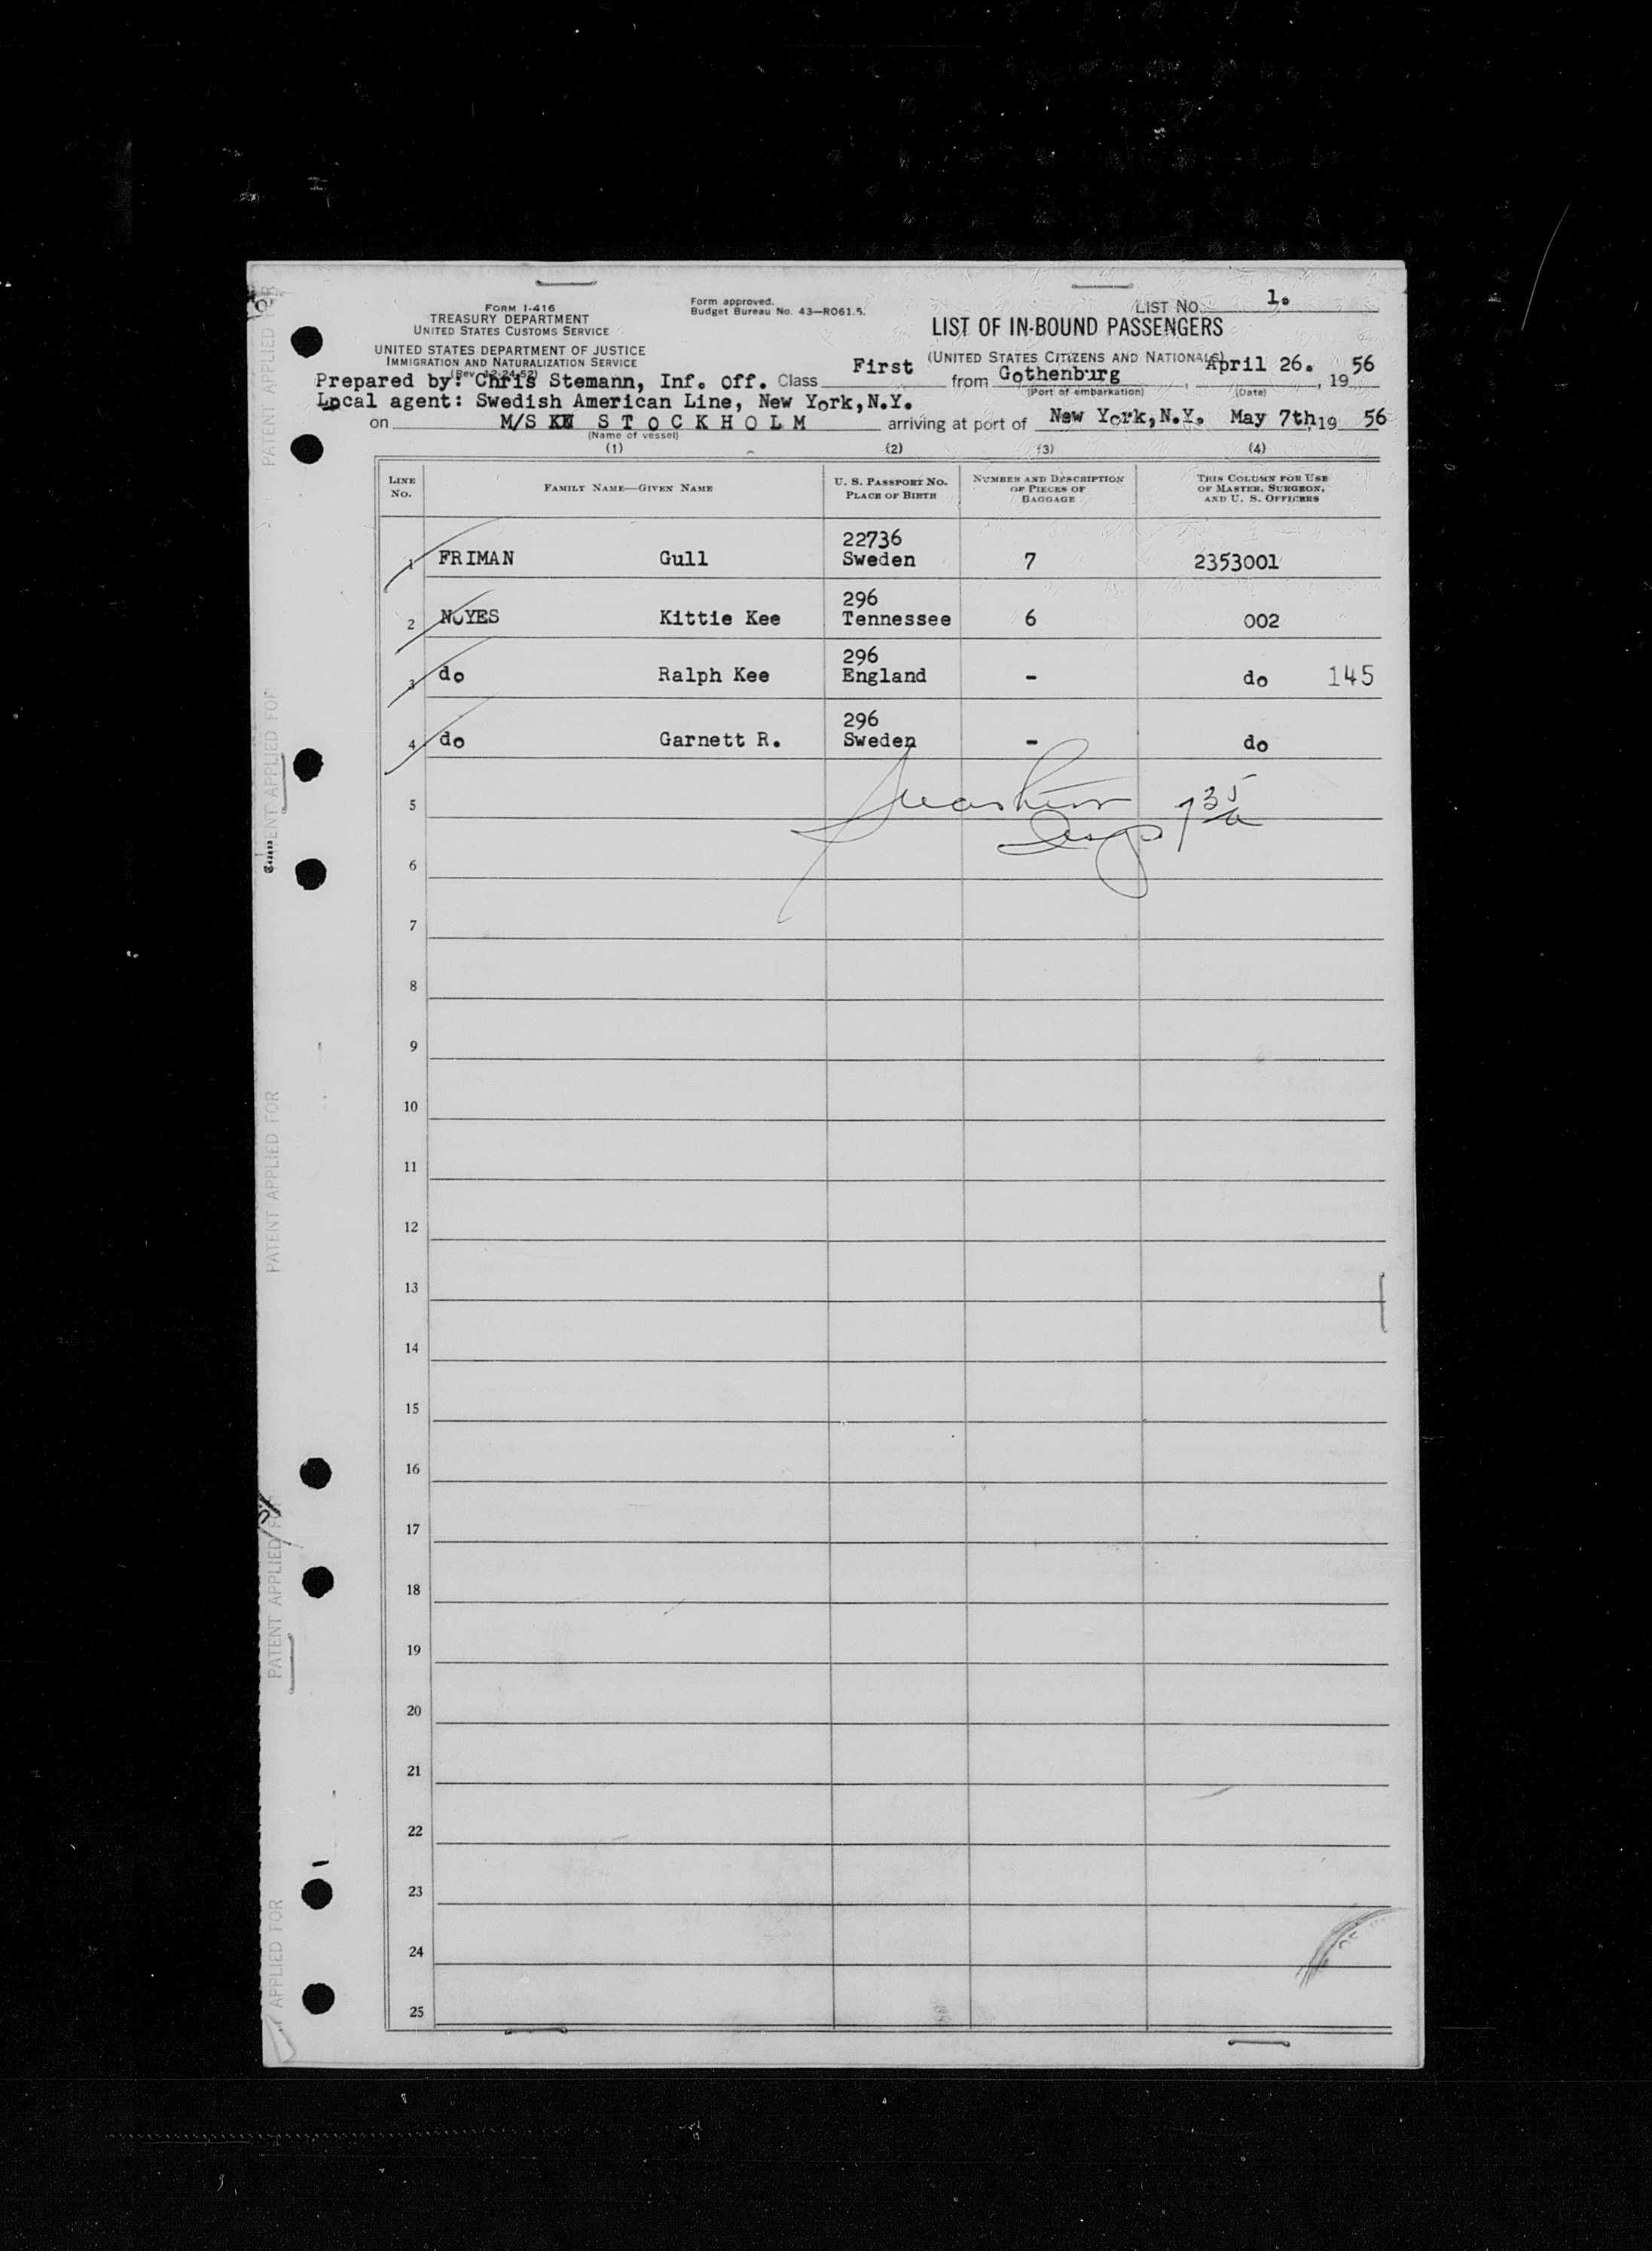 LIST NO. 1.
FORM I-416
TREASURY DEPARTMENT
UNITED STATES CUSTOMS SERVICE
Form approved.
Budget Bureau No. 43—RO61.5.
LIST OF IN-BOUND PASSENGERS
(UNITED STATES CITIZENS AND NATIONALS)
UNITED STATES DEPARTMENT OF JUSTICE
IMMIGRATION AND NATURALIZATION SERVICE
(Rev. 12-24-52)
Prepared by: Chris Stemann, Inf. off. Class First from Gothenburg, April 26., 1956
(Port of embarkation) (Date)
Local agent: Swedish American Line, New York,N.Y.
on M/S STOCKHOLM arriving at port of New York,N.Y. May 7th, 19 56
(Name of vessel)
(1) (2) (3) (4)
LINE NO.
FAMILY NAME—GIVEN NAME
U. S. PASSPORT NO.
PLACE OF BIRTH
NUMBER AND DESCRIPTION
OF PIECES OF
BAGGAGE
THIS COLUMN FOR USE
OF MASTER, SURGEON,
AND U. S. OFFICERS
22736
1 FRIMAN Gull Sweden 7 2353001
296
2 NOYES Kittie Kee Tennessee 6 002
296
3 do Ralph Kee England - do 145
296
4 do Garnett R. Sweden - do
5
6
7
8
9
10
11
12
13
14
15
16
17
18
19
20
21
22
23
24
25
PATENT APPLIED FOR
PATENT APPLIED FOR
PATENT APPLIED FOR
PATENT APPLIED
APPLIED FOR